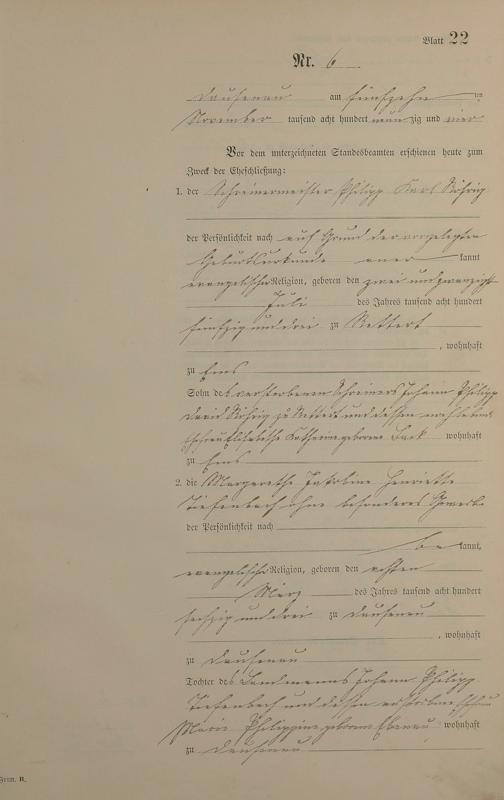 Blatt 22
Nr. 6
Dausenau am fünfzehn ten
November tausend acht hundert neun zig und vier
Vor dem unterzeichneten Standesbeamten erschienen heute zum
Zweck der Eheschließung:
1. der Schreinermeister Philipp Karl
der Persönlichkeit nach auf Grund der vorgelegten
Geburtsurkunde aner kannt
evangelischer Religion, geboren den zwei und zwanzigst
Juli des Jahres tausend acht hundert
fünfzig und drei zu Rettert
, wohnhaft
zu Ems
Sohn des verstorbenen Schreiners Johann Philipp
David zu Rettert und dessen
Ehefrau Elisabethe Katharine geborene wohnhaft
zu Ems
2. die Margarethe Jakobine Henriette
Tiefenbach ohne besonderes Gewerbe
der Persönlichkeit nach
be kannt,
evangelischer Religion, geboren den ersten
März des Jahres tausend acht hundert
sechzig und drei zu Dausenau
, wohnhaft
zu Dausenau
Tochter des Landmanns Johann Philipp
Tiefenbach und dessen Ehefrau
Marie Philippine geborene wohnhaft
zu Dausenau
Form. B.